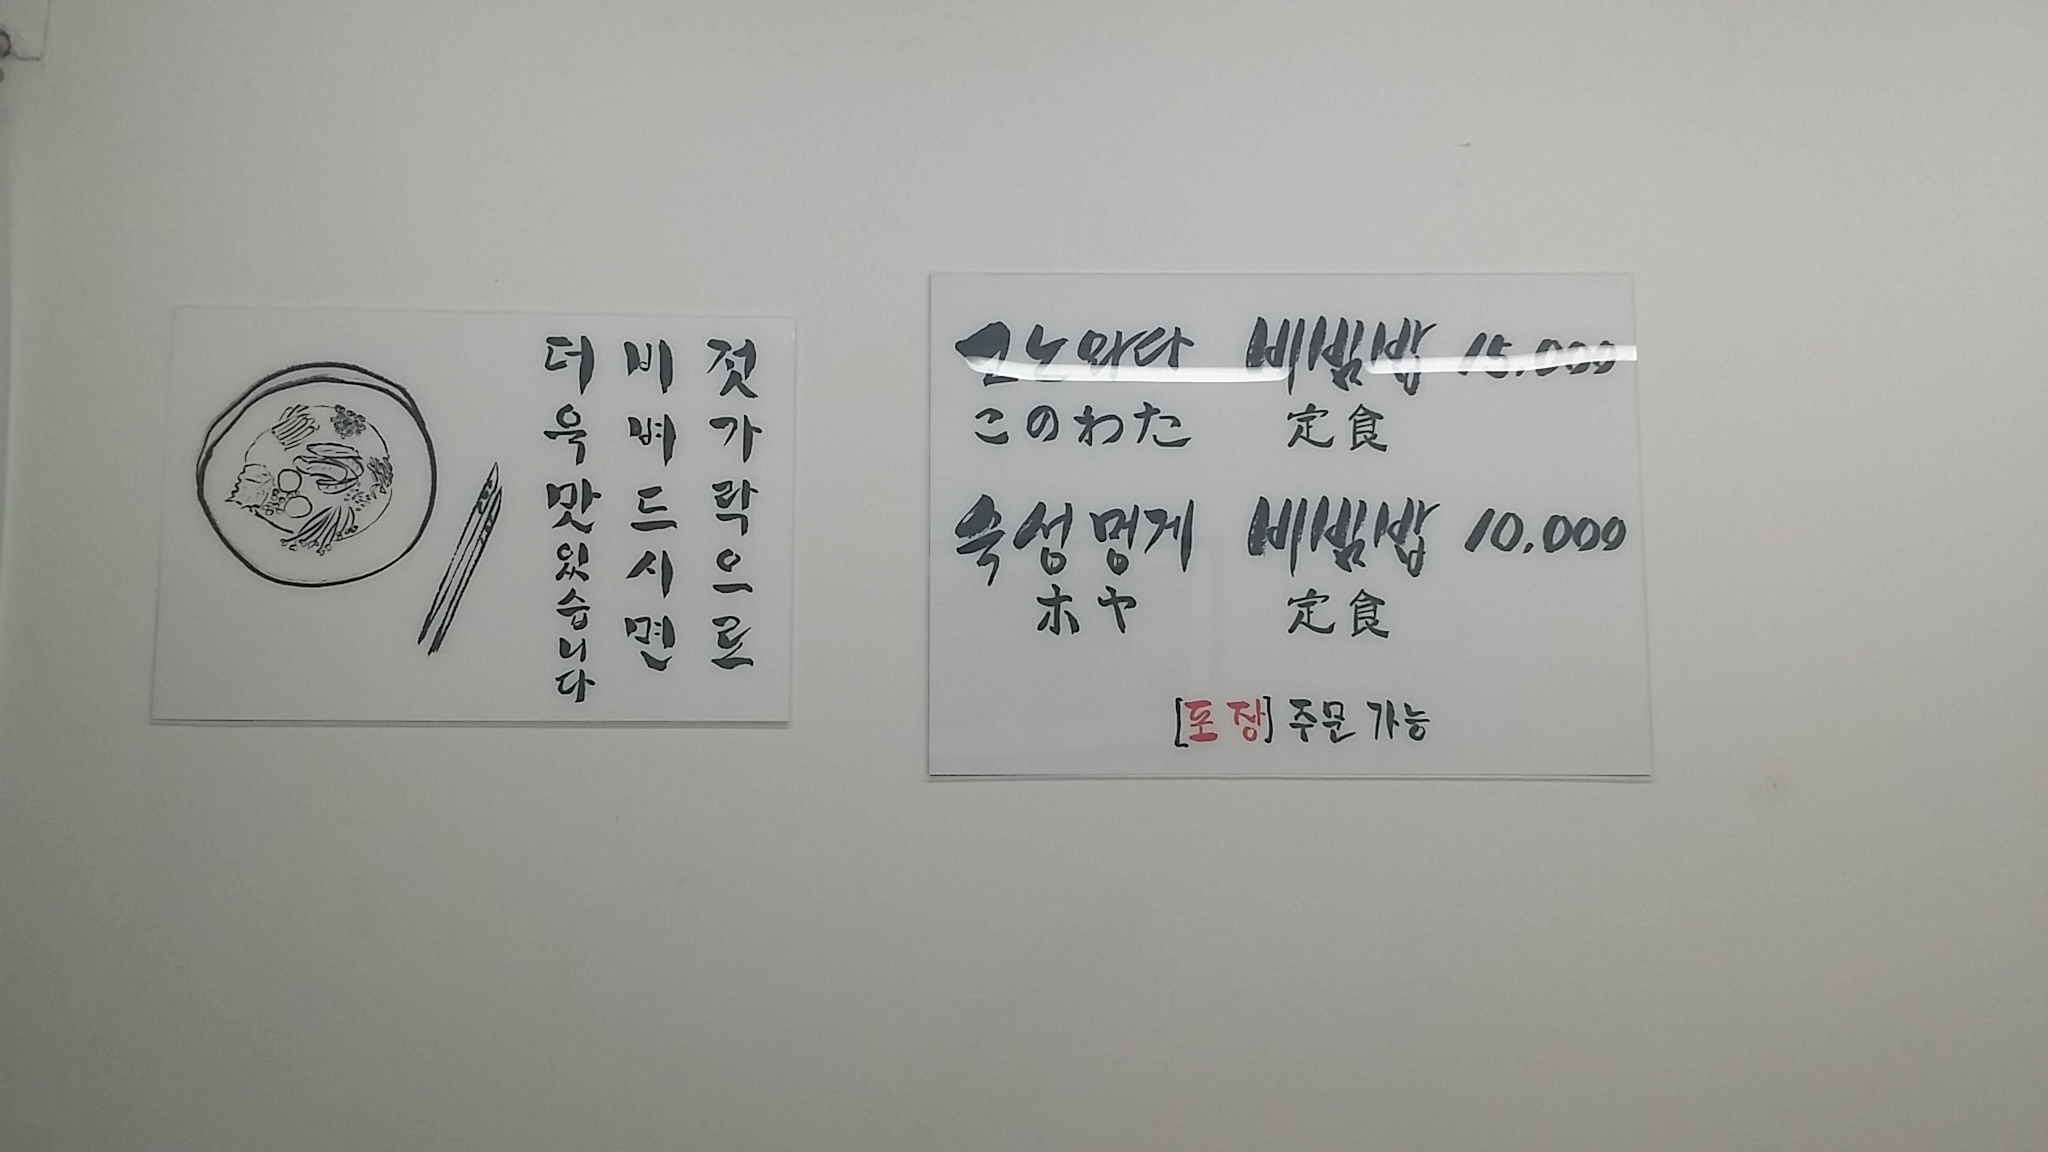 젓가락으로
비벼드시면
더욱맛있습니다
고노와다 비빔밥 15.000
このわた 定食
숙성멍게 비빔밥 10.000
ホヤ 定食
[포장] 주문 가능